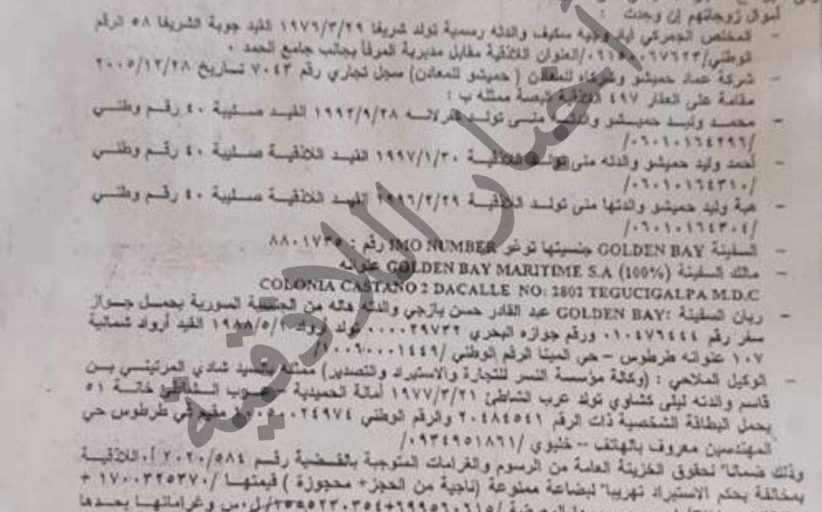 أموال زوجاتهم إن وجدت :
- المخلص الجمركي اياد وجيه سكيف والدته رسمية تولد شريفا ١٩٧٦/٣/٢٩ القيد جوبة الشريفا ٥٨ الرقم
العنوان اللاذقية مقابل مديرية المرفأ بجانب جامع الحمد .
- شركة عماد حميشو وشركاه للمعادن ( حميشو للمعادن) سجل تجاري رقم ٧٠٤٣ تاريخ ٢٠٠٥/١٢/٢٨
مقامة على العقار ٤٩٧ اللاذقية البصة ممثله ب :
- محمد وليد حميشو والدته منى تولد ١٩٩٢/٩/٢٨ القيد صليبة ٤٠ رقم وطني
/٠٦٠١٠١٦٤٢٩٦/
- أحمد وليد حميشو والدته منى تولد اللاذقية ١٩٩٧/١/٣٠ القيد اللاذقية صليبة ٤٠ رقم وطني
/٠٦٠١٠١٦٤٣١٠/
- هبة وليد حميشو والدتها منى تولد اللاذقية ١٩٩٦/٢/٢٩ القيد اللاذقية صليبة ٤٠ رقم وطني
/٠٦٠١٠١٦٤٣٠٤/
- السفينة GOLDEN BAY جنسيتها توغو IMO NUMBER رقم : ٨٨٠١٧٣٥
- مالك السفينة GOLDEN BAY MARITIME S.A (100%) عنوانه
COLONIA CASTANO 2 DACALLE NO: 2802 TEGUCIGALPA M.D.C
- ربان السفينة :GOLDEN BAY عبد القادر حسن يازجي والدته هاله من الجنسية السورية يحمل جواز
سفر رقم ٠١٠٤٧٦٤٤٤ ورقم جوازه البحري ٠٠٠٠٢٩٧٣٢ تولد أرواد ١٩٨٨/٥/٢ القيد أرواد شمالية
١٠٧ عنوانه طرطوس – حي المينا الرقم الوطني
- الوكيل الملاحي : (وكالة مؤسسة النسر للتجارة والاستيراد والتصدير) ممثله بالسيد شادي المرتيني بن
قاسم والدته ليلى كشاوي تولد عرب الشاطئ ١٩٧٧/٣/٢١ أمانة الحميدية – عرب الشاطئ خانة ٥١
يحمل البطاقة الشخصية ذات الرقم ٢٠٤٨٤٥٤١ والرقم الوطني مقيم في طرطوس حي
المهندسين معروف بالهاتف – خليوي /٠٩٣٤٩٥١٨٦١/
وذلك ضمانا" لحقوق الخزينة العامة من الرسوم والغرامات المتوجبة بالقضية رقم ٢٠٢٠/٥٨٤ أ.اللاذقية
بمخالفة بحكم الاستيراد تهريبا" لبضاعة ممنوعة (ناجية من الحجز+ محجوزة ) قيمتها /١٧٠٠٣٢٥٣٧٠ +
ل.س وغراماتها بحدها
أخبار اللاذقية